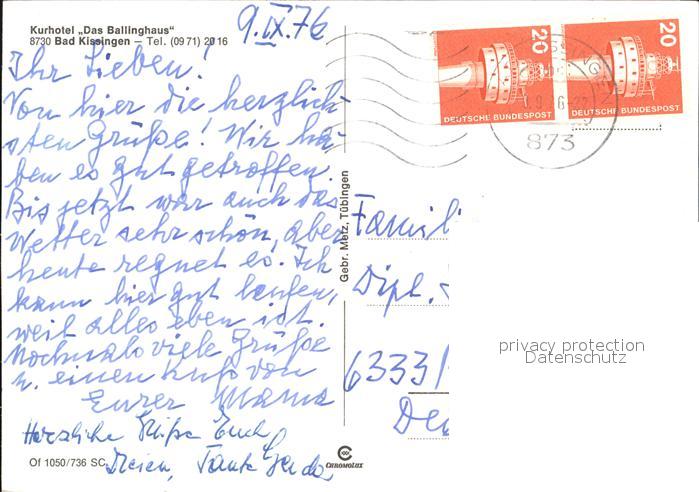 Kurhotel „Das Ballinghaus"
8730 Bad Kissingen — Tel. (09 71) 20 16
9.IX.76
Ihr Lieben!
Von hier die herzlich-
sten Grüße! Wir ha-
ben es gut getroffen.
Bis jetzt war auch das
Wetter sehr schön, aber
heute regnet es. Ich
kann hier gut laufen,
weil alles eben ist.
Nochmals viele Grüße
u. einen Kuß von
Eurer Mama
Herzliche Grüße Euch
Tante
Of 1050/736 SC
Gebr. Metz, Tübingen
CHROMOLUX
20
DEUTSCHE BUNDESPOST
20
DEUTSCHE BUNDESPOST
873
Famil
Dipl.
6333
De
privacy protection
Datenschutz